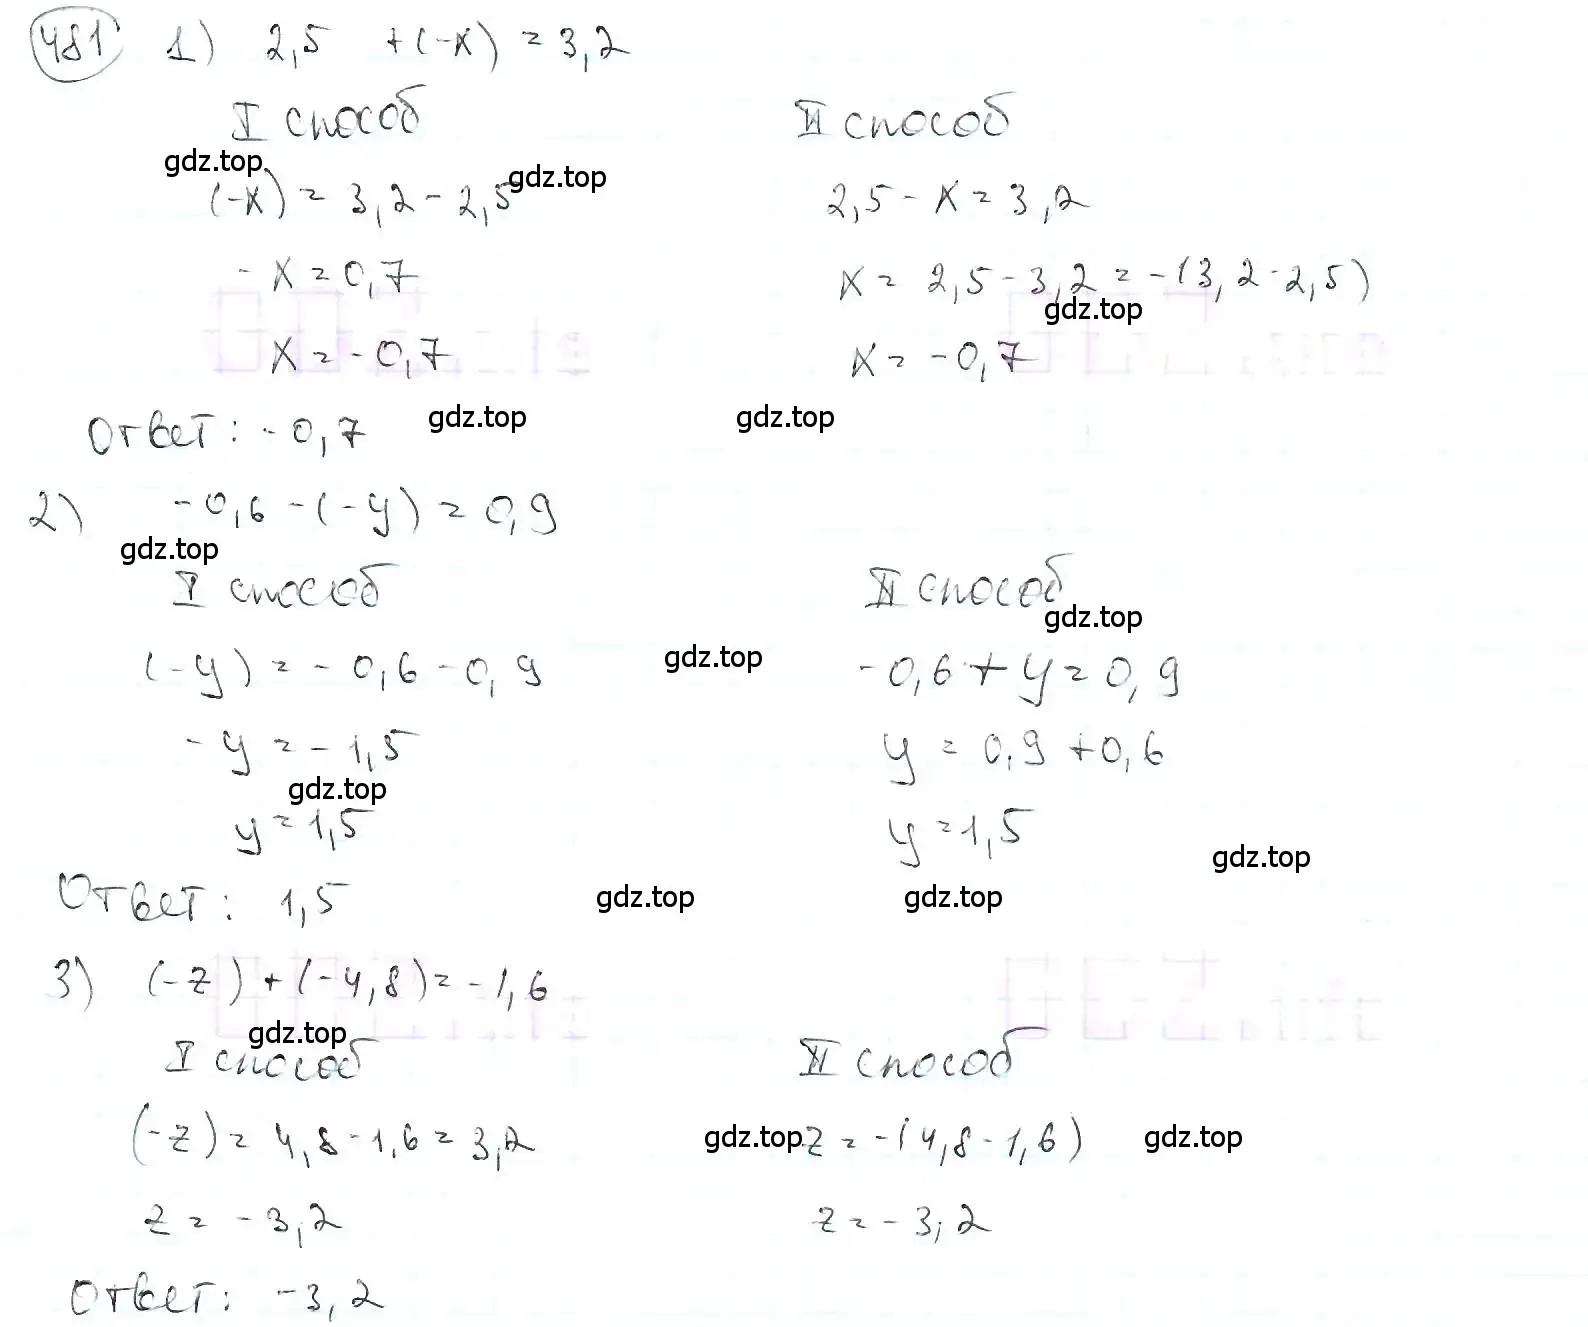 481 1) 2,5 + (-x) = 3,2
I способ II способ
gdz.top gdz.top
(-x) = 3,2 - 2,5 2,5 - x = 3,2
-x = 0,7 x = 2,5 - 3,2 = -(3,2 - 2,5)
gdz.top
x = -0,7 x = -0,7
Ответ: -0,7 gdz.top gdz.top
2) -0,6 - (-y) = 0,9
gdz.top
I способ II способ
gdz.top
(-y) = -0,6 - 0,9 gdz.top -0,6 + y = 0,9
-y = -1,5 y = 0,9 + 0,6
gdz.top
y = 1,5 y = 1,5
gdz.top
Ответ: 1,5 gdz.top gdz.top
3) (-z) + (-4,8) = -1,6
gdz.top
I способ II способ
(-z) = 4,8 - 1,6 = 3,2 gdz.top z = -(4,8 - 1,6) gdz.top
z = -3,2 z = -3,2
Ответ: -3,2